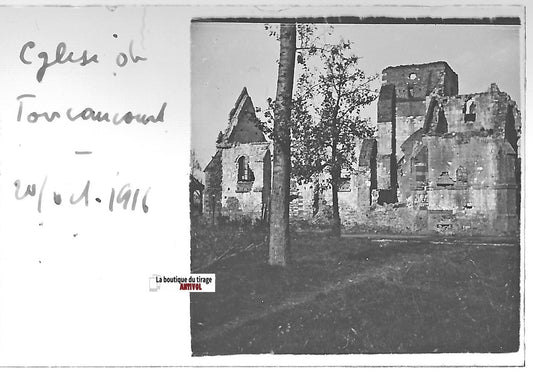 Eglise de
Tovicaucourt
—
20/oct. 1916
La boutique du tirage
ANTIVOL